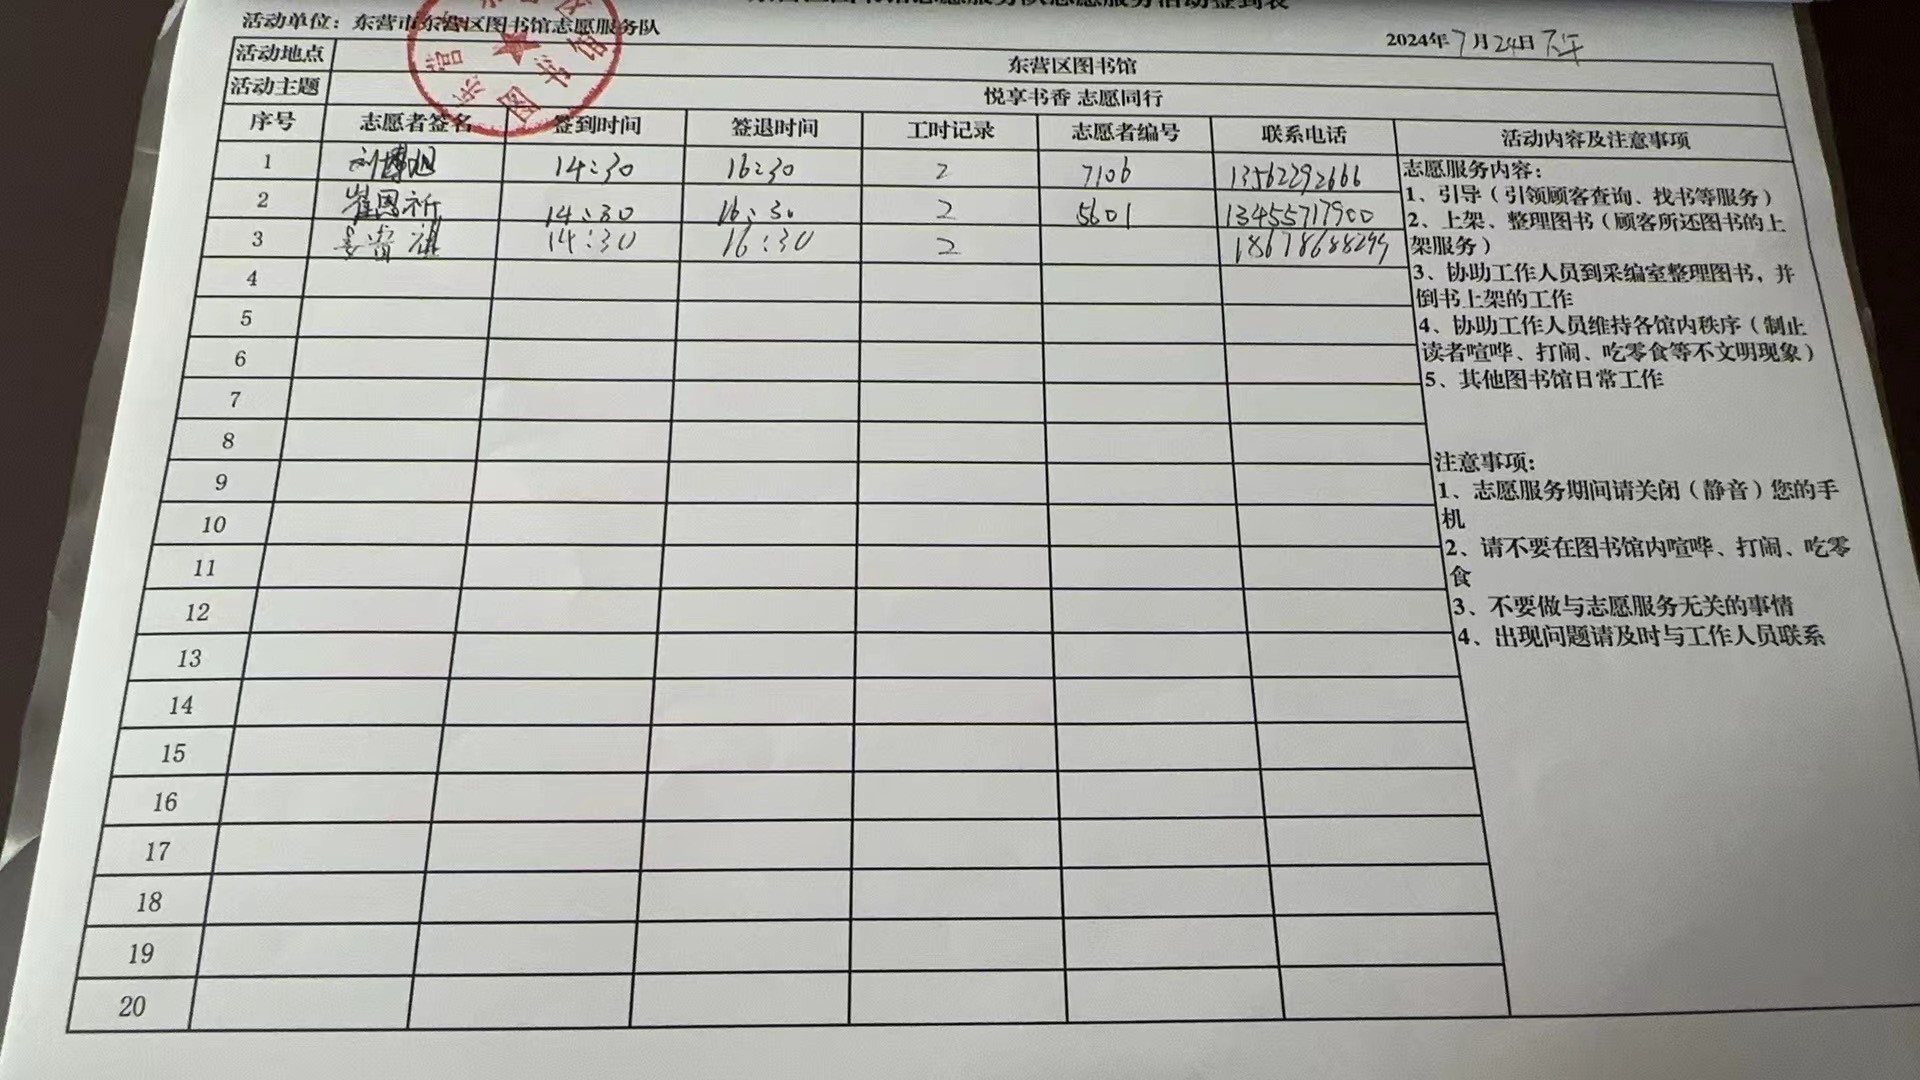 活动单位：东营市东营区图书馆志愿服务队
2024年7月24日下午
活动地点 东营区图书馆
活动主题 悦享书香 志愿同行
序号 志愿者签名 签到时间 签退时间 工时记录 志愿者编号 联系电话 活动内容及注意事项
1 刘博旭 14:30 16:30 2 7106 13562292666
2 崔恩祈 14:30 16:30 2 5601 13455717900
3 14:30 16:30 2 18678688299
4
5
6
7
8
9
10
11
12
13
14
15
16
17
18
19
20
志愿服务内容：
1、引导（引领顾客查询、找书等服务）
2、上架、整理图书（顾客所还图书的上
架服务）
3、协助工作人员到采编室整理图书，并
倒书上架的工作
4、协助工作人员维持各馆内秩序（制止
读者喧哗、打闹、吃零食等不文明现象）
5、其他图书馆日常工作
注意事项：
1、志愿服务期间请关闭（静音）您的手
机
2、请不要在图书馆内喧哗、打闹、吃零
食
3、不要做与志愿服务无关的事情
4、出现问题请及时与工作人员联系